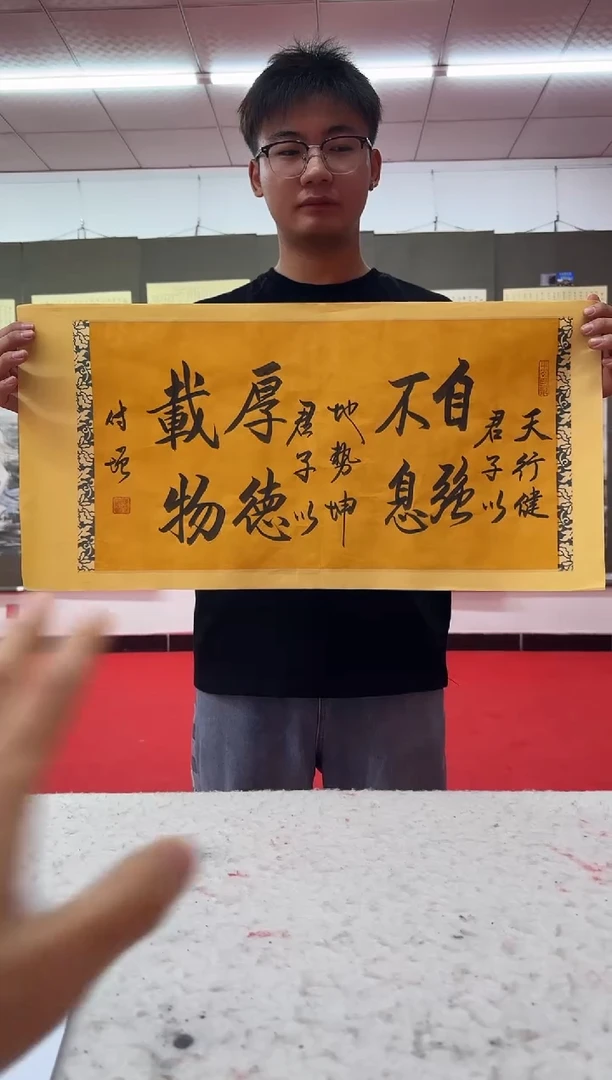 天行健
君子以
自強
不息
地勢坤
君子以
厚德
載物